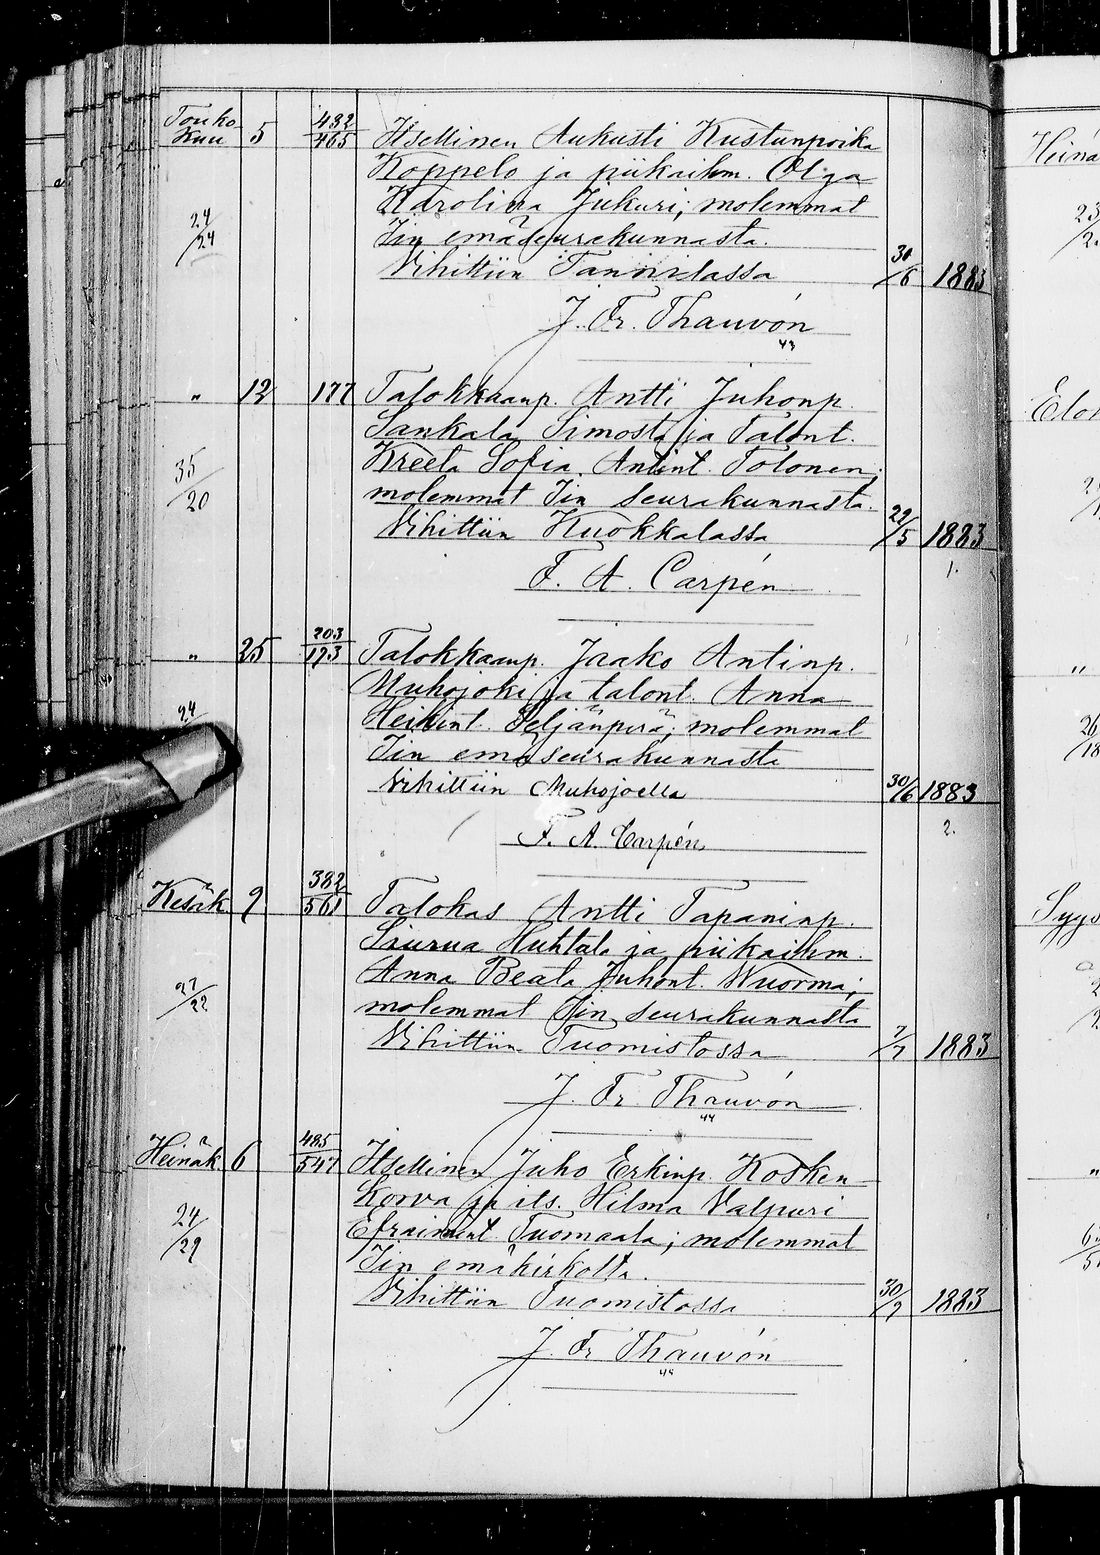 Touko
Kuu 5 432/465 Itsellinen Aukusti Kustunpoika
Koppelo ja piikaihm. Olga
24/24 Karolina Jukuri; molemmat
Iin emäseurakunnasta.
Vihittiin Tannilassa 30/6 1883
J. Fr. Thauvón
43
„ 12 177 Talokkaanp. Antti Juhonp.
Sankala Simosta ja Talont.
35/20 Kreeta Sofia Antint. Tolonen.
molemmat Iin seurakunnasta.
Vihittiin Kuokkalassa 22/5 1883
F. A. Carpén 1.
„ 25 203/173 Talokkaanp. Jaako Antinp.
Muhojoki ja talont. Anna
24 Heikint. Veljänperä; molemmat
Iin emäseurakunnasta
Vihittiin Muhojoella 30/6 1883
F. A. Carpén 2.
Kesäk 9 382/561 Talokas Antti Tapaninp.
Siurua Huhtala ja piikaihm.
27/22 Anna Beata Juhont. Wuorma;
molemmat Iin seurakunnasta
Vihittiin Tuomistossa 7/7 1883
J. Fr. Thauvón
44
Heinäk 6 485/547 Itsellinen Juho Erkinp. Kosken
Korva ja its. Hilma Valpuri
24/29 Efraimint. Tuomaala; molemmat
Iin emäkirkolta.
Vihittiin Tuomistossa 30/9 1883
J. Fr Thauvón
45
Heinä
Elok
„
26/18
Syys
„